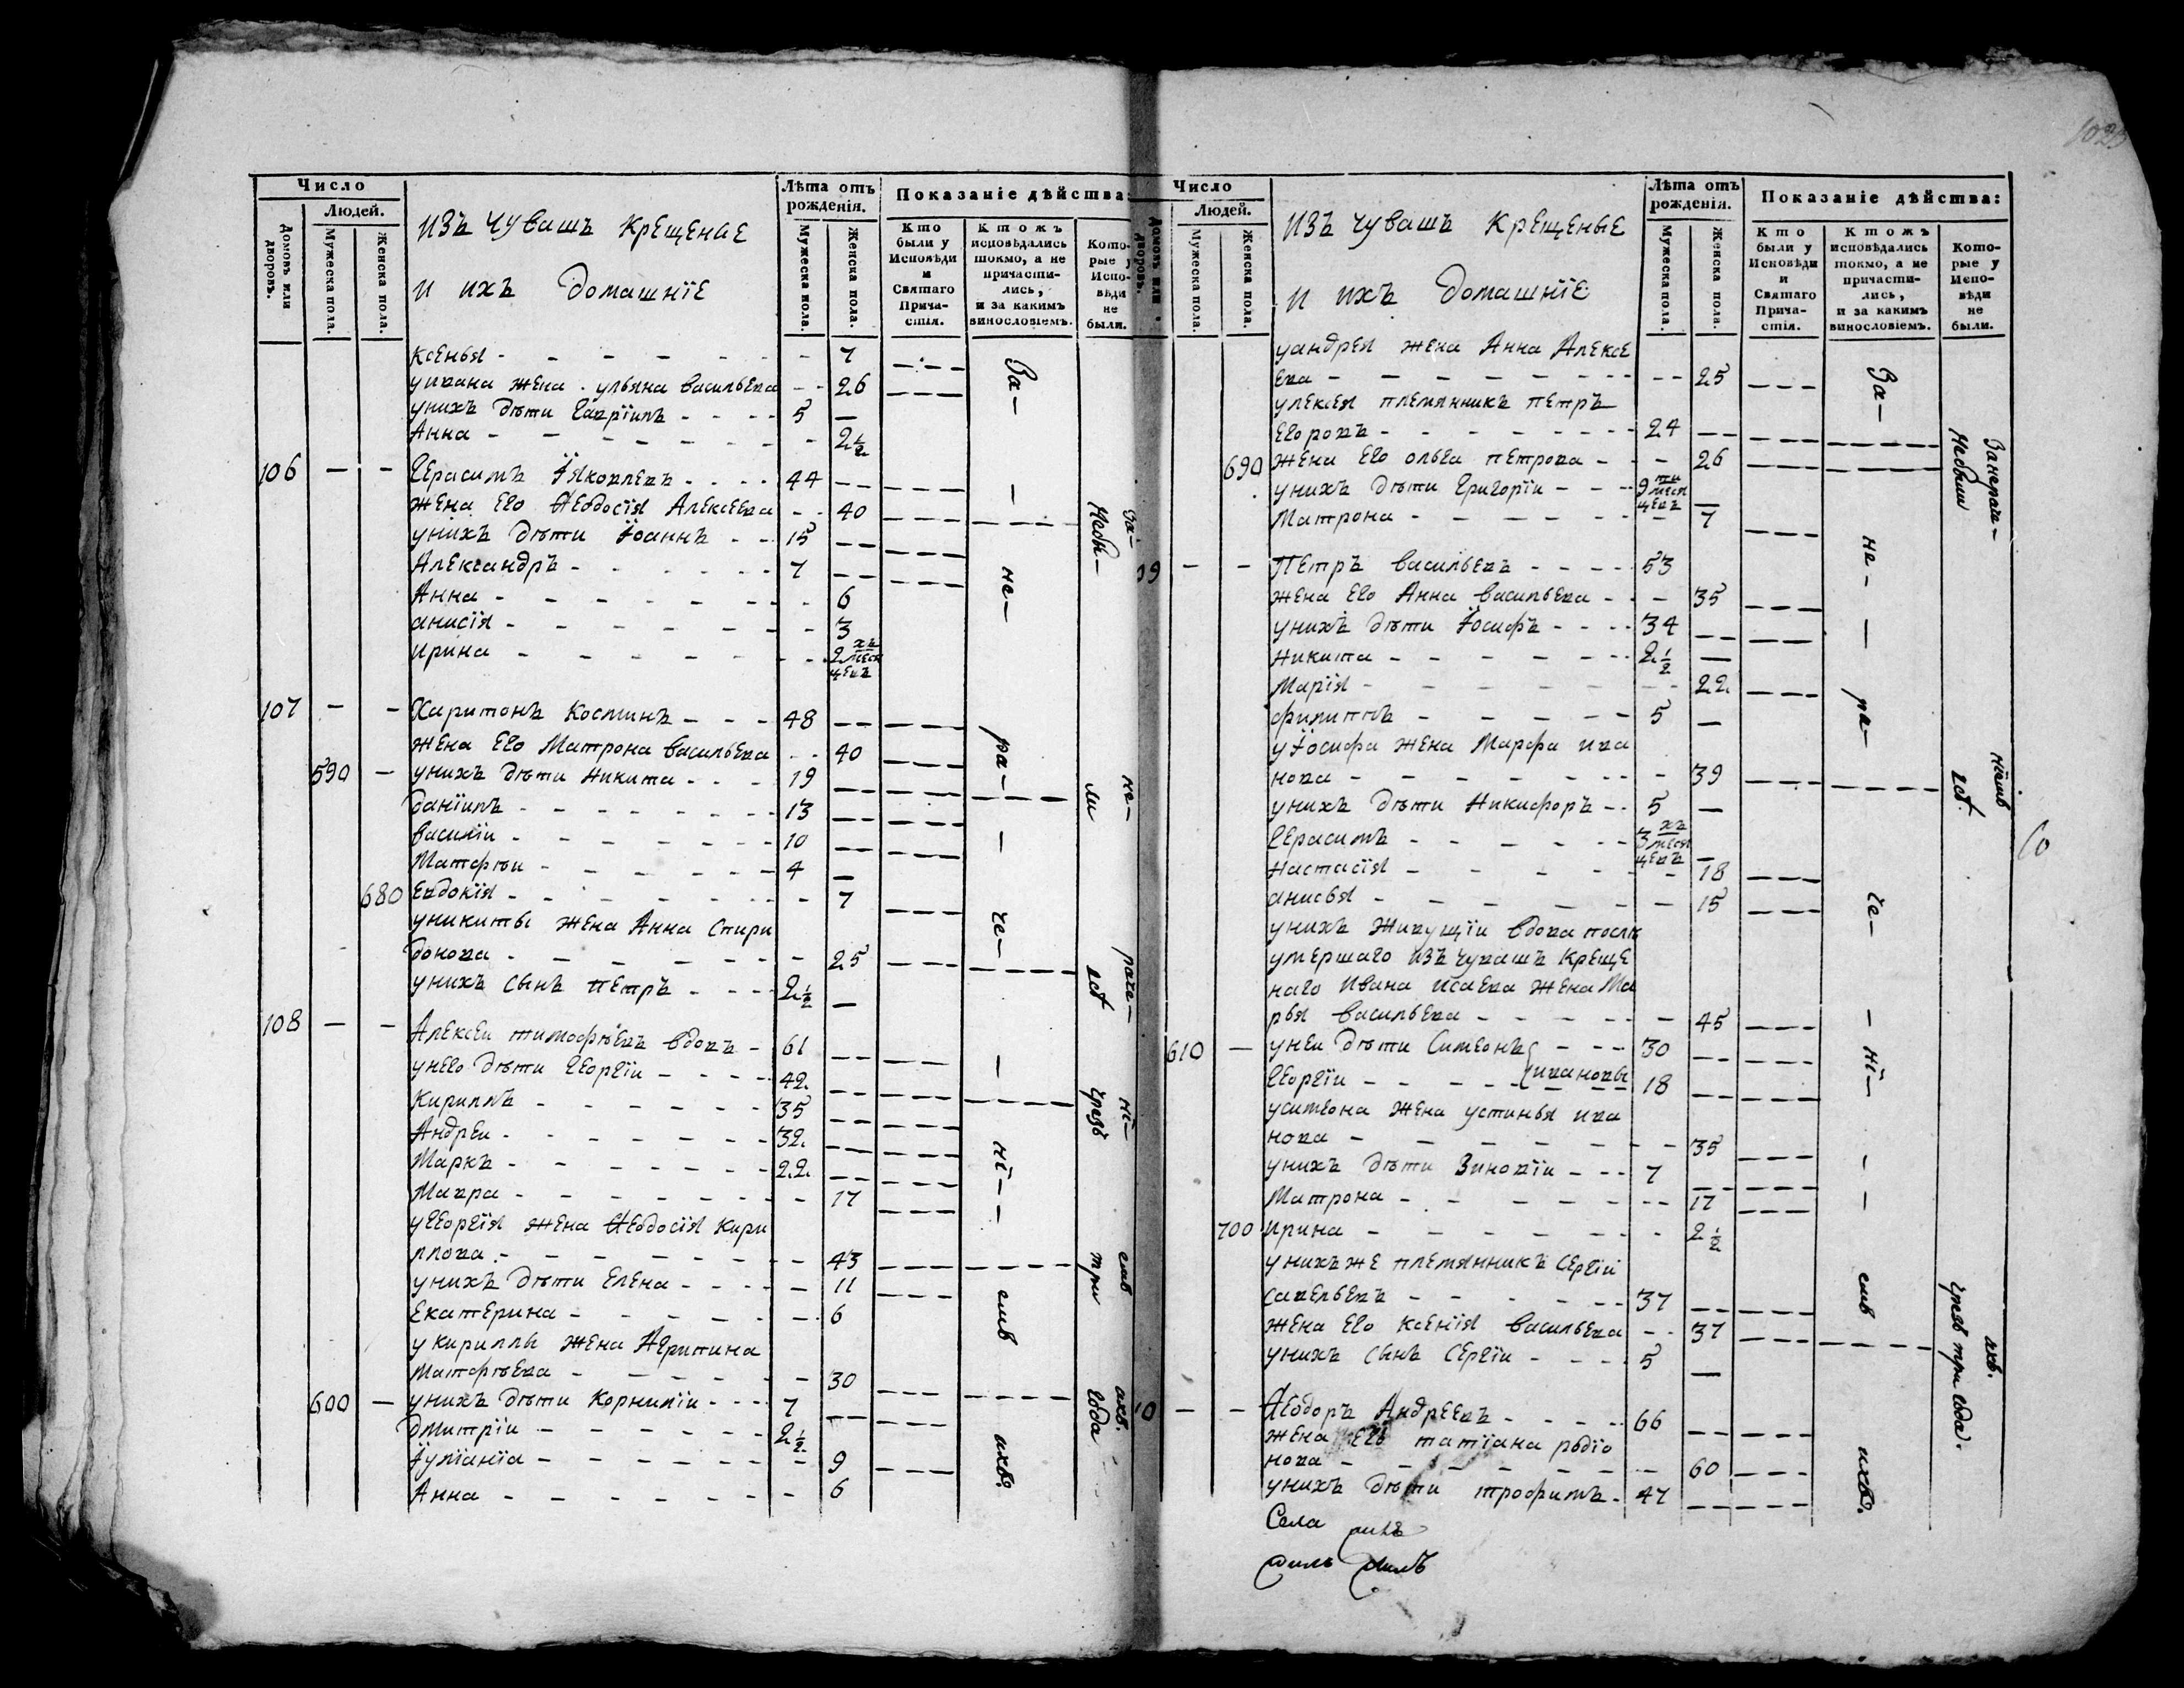 Число
Людей.
Домовъ или дворовъ.
Мужеска пола.
Женска пола.
изъ чувашъ крещеные
и ихъ домашнїе
Лѣта отъ рожденія.
Мужеска пола.
Женска пола.
Показаніе дѣйства:
Кто были у Исповѣди и Святаго Прича- стія.
Ктожъ исповѣдались токмо, а не причасти- лись, и за какимъ винословіемъ.
Кото- рые у Испо- вѣди не были.
ксенья - 7
уивана жена ульяна васильева - 26
унихъ дѣти гаврїилъ - 5
Анна - 2 1/2
106 Герасимъ Їяковлевъ - 44
жена его Ѳеодосїя Алексеева - 40
унихъ дѣти Їоаннъ - 15
Александръ - 7
Анна - 6
анисїя - 3
ирина - 2 хъ месяцевъ
107 Харитонъ Косминъ - 48
жена его Матрона васильева - 40
590 унихъ дѣти никита - 19
данїилъ - 13
василїи - 10
Матфѣи - 4
680 евдокїя - 7
уникиты жена Анна Спири
донова - 25
унихъ сынъ петръ - 2 1/2
108 Алексеи тимофѣевъ вдовъ - 61
унего дѣти Георгїи - 42
Кириллъ - 35
Андреи - 32
Маркъ - 22
Мавра - 17
уГеоргїя жена Ѳеодосїя кири
ллова - 43
унихъ дѣти елена - 11
екатерина - 6
укириллы жена Агрипина
матфѣева - 30
600 унихъ дѣти корнилїи - 7
дмитрїи - 2 1/2
Їулїанїа - 9
Анна - 6
За - не - ра - че - нї - емъ ихъ.
За - не - раче - нї - емъ ихъ.
Небы - ли ест чрезъ три года
1023
Число
Людей.
Домовъ или дворовъ.
Мужеска пола.
Женска пола.
изъ чувашъ крещеные
и ихъ домашнїе
Лѣта отъ рожденія.
Мужеска пола.
Женска пола.
Показаніе дѣйства:
Кто были у Исповѣди и Святаго Прича- стія.
Ктожъ исповѣдались токмо, а не причасти- лись, и за какимъ винословіемъ.
Кото- рые у Испо- вѣди не были.
уандрея жена Анна Алексе
ева - 25
улексея племянникъ петръ
егоровъ - 24
690 жена его ольга петрова - 26
унихъ дѣти григорїи - 9 ти месяцевъ
Матрона - 7
09 Петръ васильевъ - 53
жена его Анна васильева - 35
унихъ дѣти Їосифъ - 34
никита - 2 1/2
Марїя - 22
филиппъ - 5
уЇосифа жена Марфа ива
нова - 39
унихъ дѣти никифоръ - 5
Герасимъ - 3 хъ месяцевъ
настасїя - 18
анисья - 15
унихъ живущїи вдова послѣ
умершаго изъ чувашъ креще
наго ивана исаева жена Ма
рья васильева - 45
610 унеи дѣти Симеонъ - 30
Георгїи - ивановы 18
усимеона жена устинья ива
нова - 35
унихъ дѣти Зиновїи - 7
Матрона - 17
700 ирина - 2 1/2
унихъже племянникъ Сергїи
савельевъ - 37
жена его ксенїя васильева - 37
унихъ сынъ Сергїи - 5
10 Ѳеодоръ Андреевъ - 66
жена его татїана родїо
нова - 60
унихъ дѣти трофимъ - 47
За - не - ра - че - нї - емъ ихъ.
Занераче - нїемъ ихъ.
Небыли ест. чрезъ три года.
Села